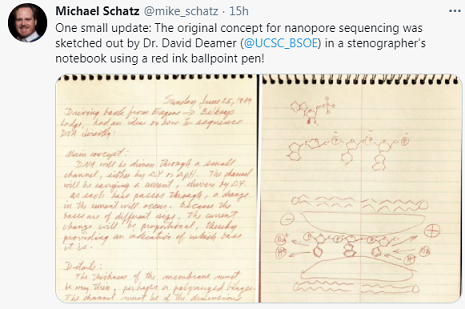 Michael Schatz @mike_schatz · 15h
One small update: The original concept for nanopore sequencing was
sketched out by Dr. David Deamer (@UCSC_BSOE) in a stenographer's
notebook using a red ink ballpoint pen!
Sunday June 25, 1989
Driving back from Eugene →
had an idea on how to sequence
DNA directly:
Main concept:
DNA will be driven through a small
channel, either by ΔΨ or ΔpH. The channel
will be carrying a current, driven by ΔΨ
as each base passes through, a change
in the current will occur. Because the
bases are of different size, the current
change will be proportional, thereby
providing an indication of which base
it is.
Details:
The thickness of the membrane must
be very thin, perhaps a polymerized
The channel must be of the dimensions